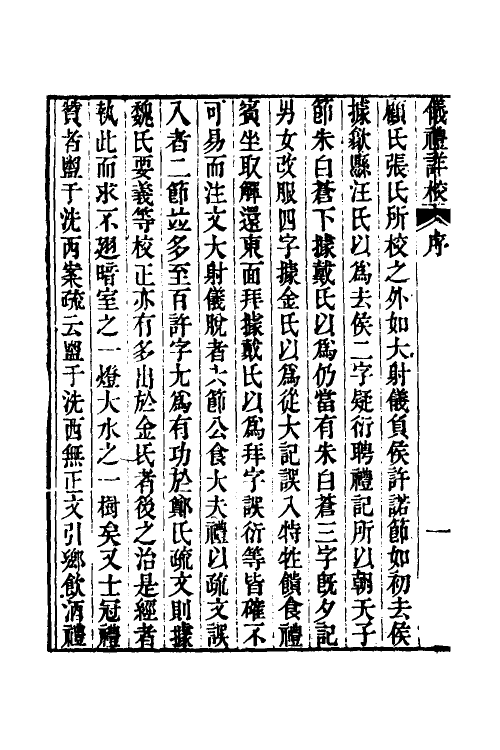 儀禮詳校 序 一
顧氏張氏所校之外如大射儀負侯許諾節如初去侯
據歙縣汪氏以爲去侯二字疑衍聘禮記所以朝天子
節朱白蒼下據戴氏以爲仍當有朱白蒼三字旣夕記
男女改服四字據金氏以爲從大記誤入特牲饋食禮
賓坐取觶還東面拜據戴氏以爲拜字誤衍等皆確不
可易而注文大射儀脫者六節公食大夫禮以疏文誤
入者二節竝多至百許字尤爲有功於鄭氏疏文則據
魏氏要義等校正亦有多出於金氏者後之治是經者
執此而求不翅暗室之一燈大水之一樹矣又士冠禮
贊者盥于洗西案疏云盥于洗西無正文引鄉飲酒禮